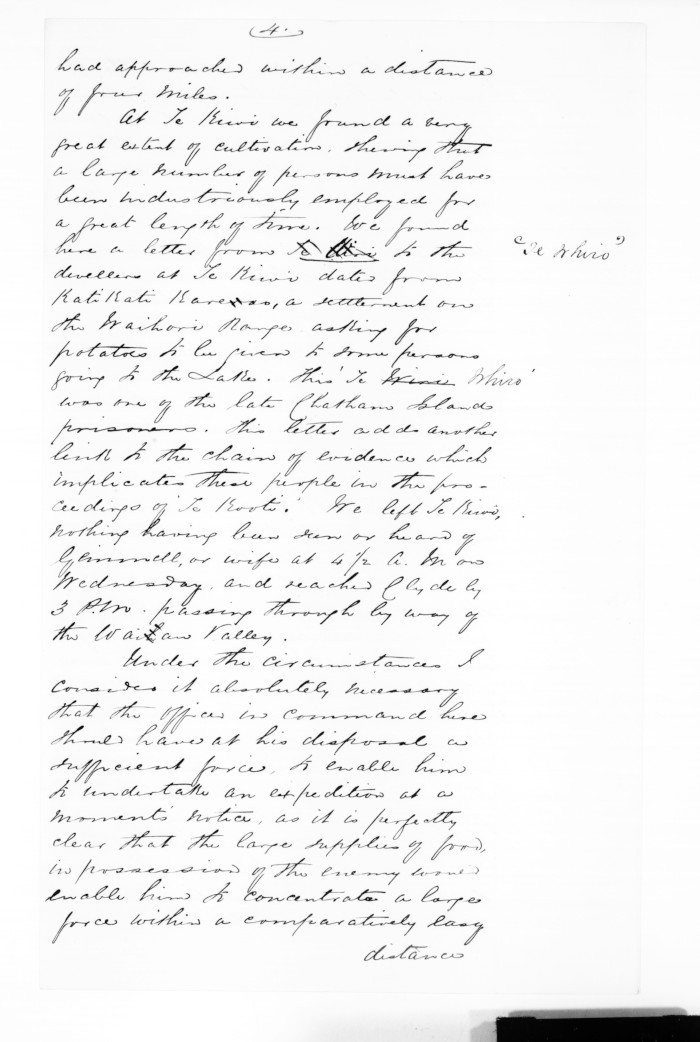 4.
had approached within a distance
of four miles.
At Te Kiwi we found a very
great extent of cultivation, shewing that
a large number of persons must have
been industriously employed for
a great length of time. We found
here a letter from Te to the
"Te Whiro"
dwellers at Te Kiwi dated from
KatiKati, a settlement on
the Waihori Range asking for
potatoes to be given to some persons
going to the Lake. This 'Te Whiro'
was one of the late Chatham Islands
prisoners. This letter adds another
link to the chain of evidence which
implicates these people in the pro-
ceedings of 'Te Kooti'. We left Te Kiwi,
nothing having been seen or heard of
Gemmell, or wife at 4½ A.M on
Wednesday, and reached Clyde by
3 P.M. passing through by way of
the Valley.
Under the circumstances I
consider it absolutely necessary
that the officer in command here
should have at his disposal a
sufficient force, to enable him
to undertake an expedition at a
moments notice, as it is perfectly
clear that the large supplies of food,
in possession of the enemy would
enable him to concentrate a large
force within a comparatively easy
distance